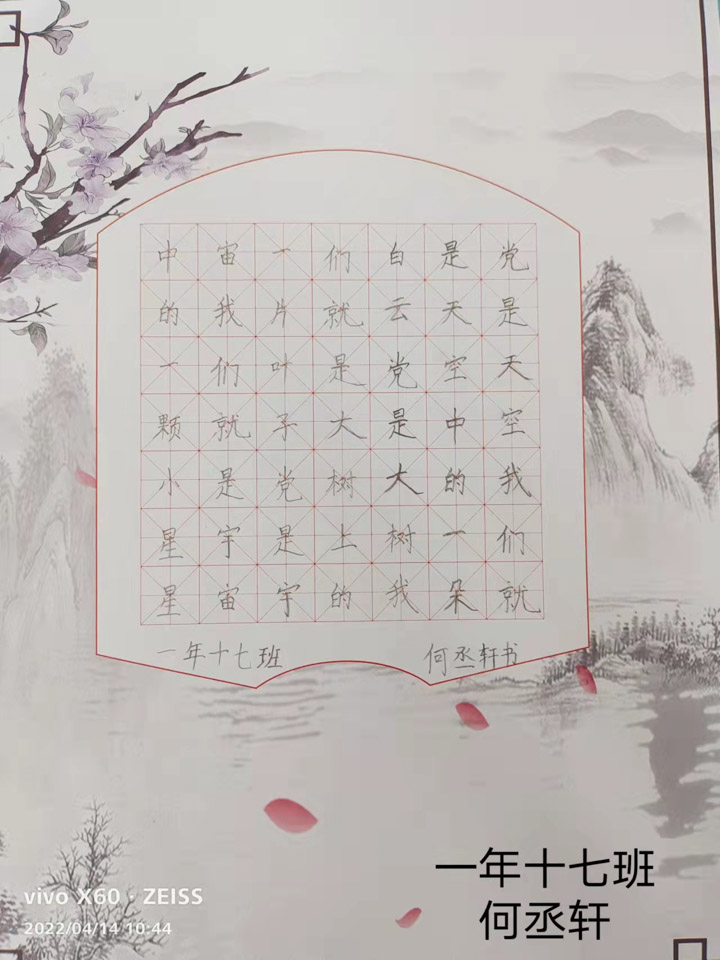 党是天空我们就
是天空中的一朵
白云党是大树我
们就是大树上的
一片叶子党是宇
宙我们就是宇宙
中的一颗小星星
一年十七班
何丞轩书
一年十七班
何丞轩
vivo X60 · ZEISS
2022/04/14 10:44